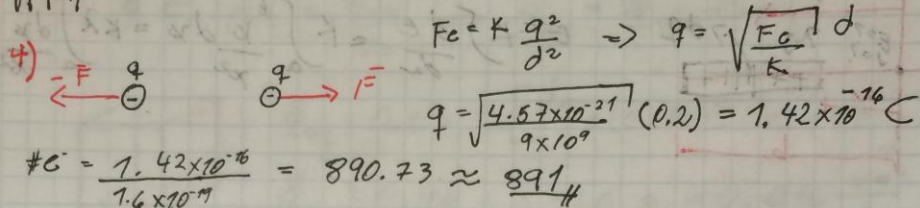 Fe = K q²/d² => q = √(Fe/K) d
4) -F q - q - F
q = √(4.57×10⁻²¹ / 9×10⁹) (0.2) = 1.42×10⁻¹⁶ C
#e⁻ = 1.42×10⁻¹⁶ / 1.6×10⁻¹⁹ = 890.73 ≈ 891